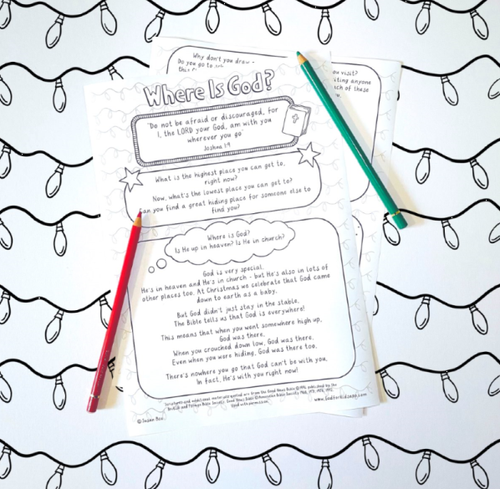 Why don't you draw -
Do you go to
you visit?
iting anyone
ch of these
Where Is God?
"Do not be afraid or discouraged, for
I, the LORD your God, am with you
wherever you go"
Joshua 1:9
What is the highest place you can get to,
right now?
Now, what's the lowest place you can get to?
Can you find a great hiding place for someone else to
find you?
Where is God?
Is He up in heaven? Is He in church?
God is very special.
He's in heaven and He's in church - but He's also in lots of
other places too. At Christmas we celebrate that God came
down to earth as a baby.
But God didn't just stay in the stable.
The Bible tells us that God is everywhere!
This means that when you went somewhere high up,
God was there.
When you crouched down low, God was there.
Even when you were hiding, God was there too.
There's nowhere you go that God can't be with you.
In fact, He's with you right now!